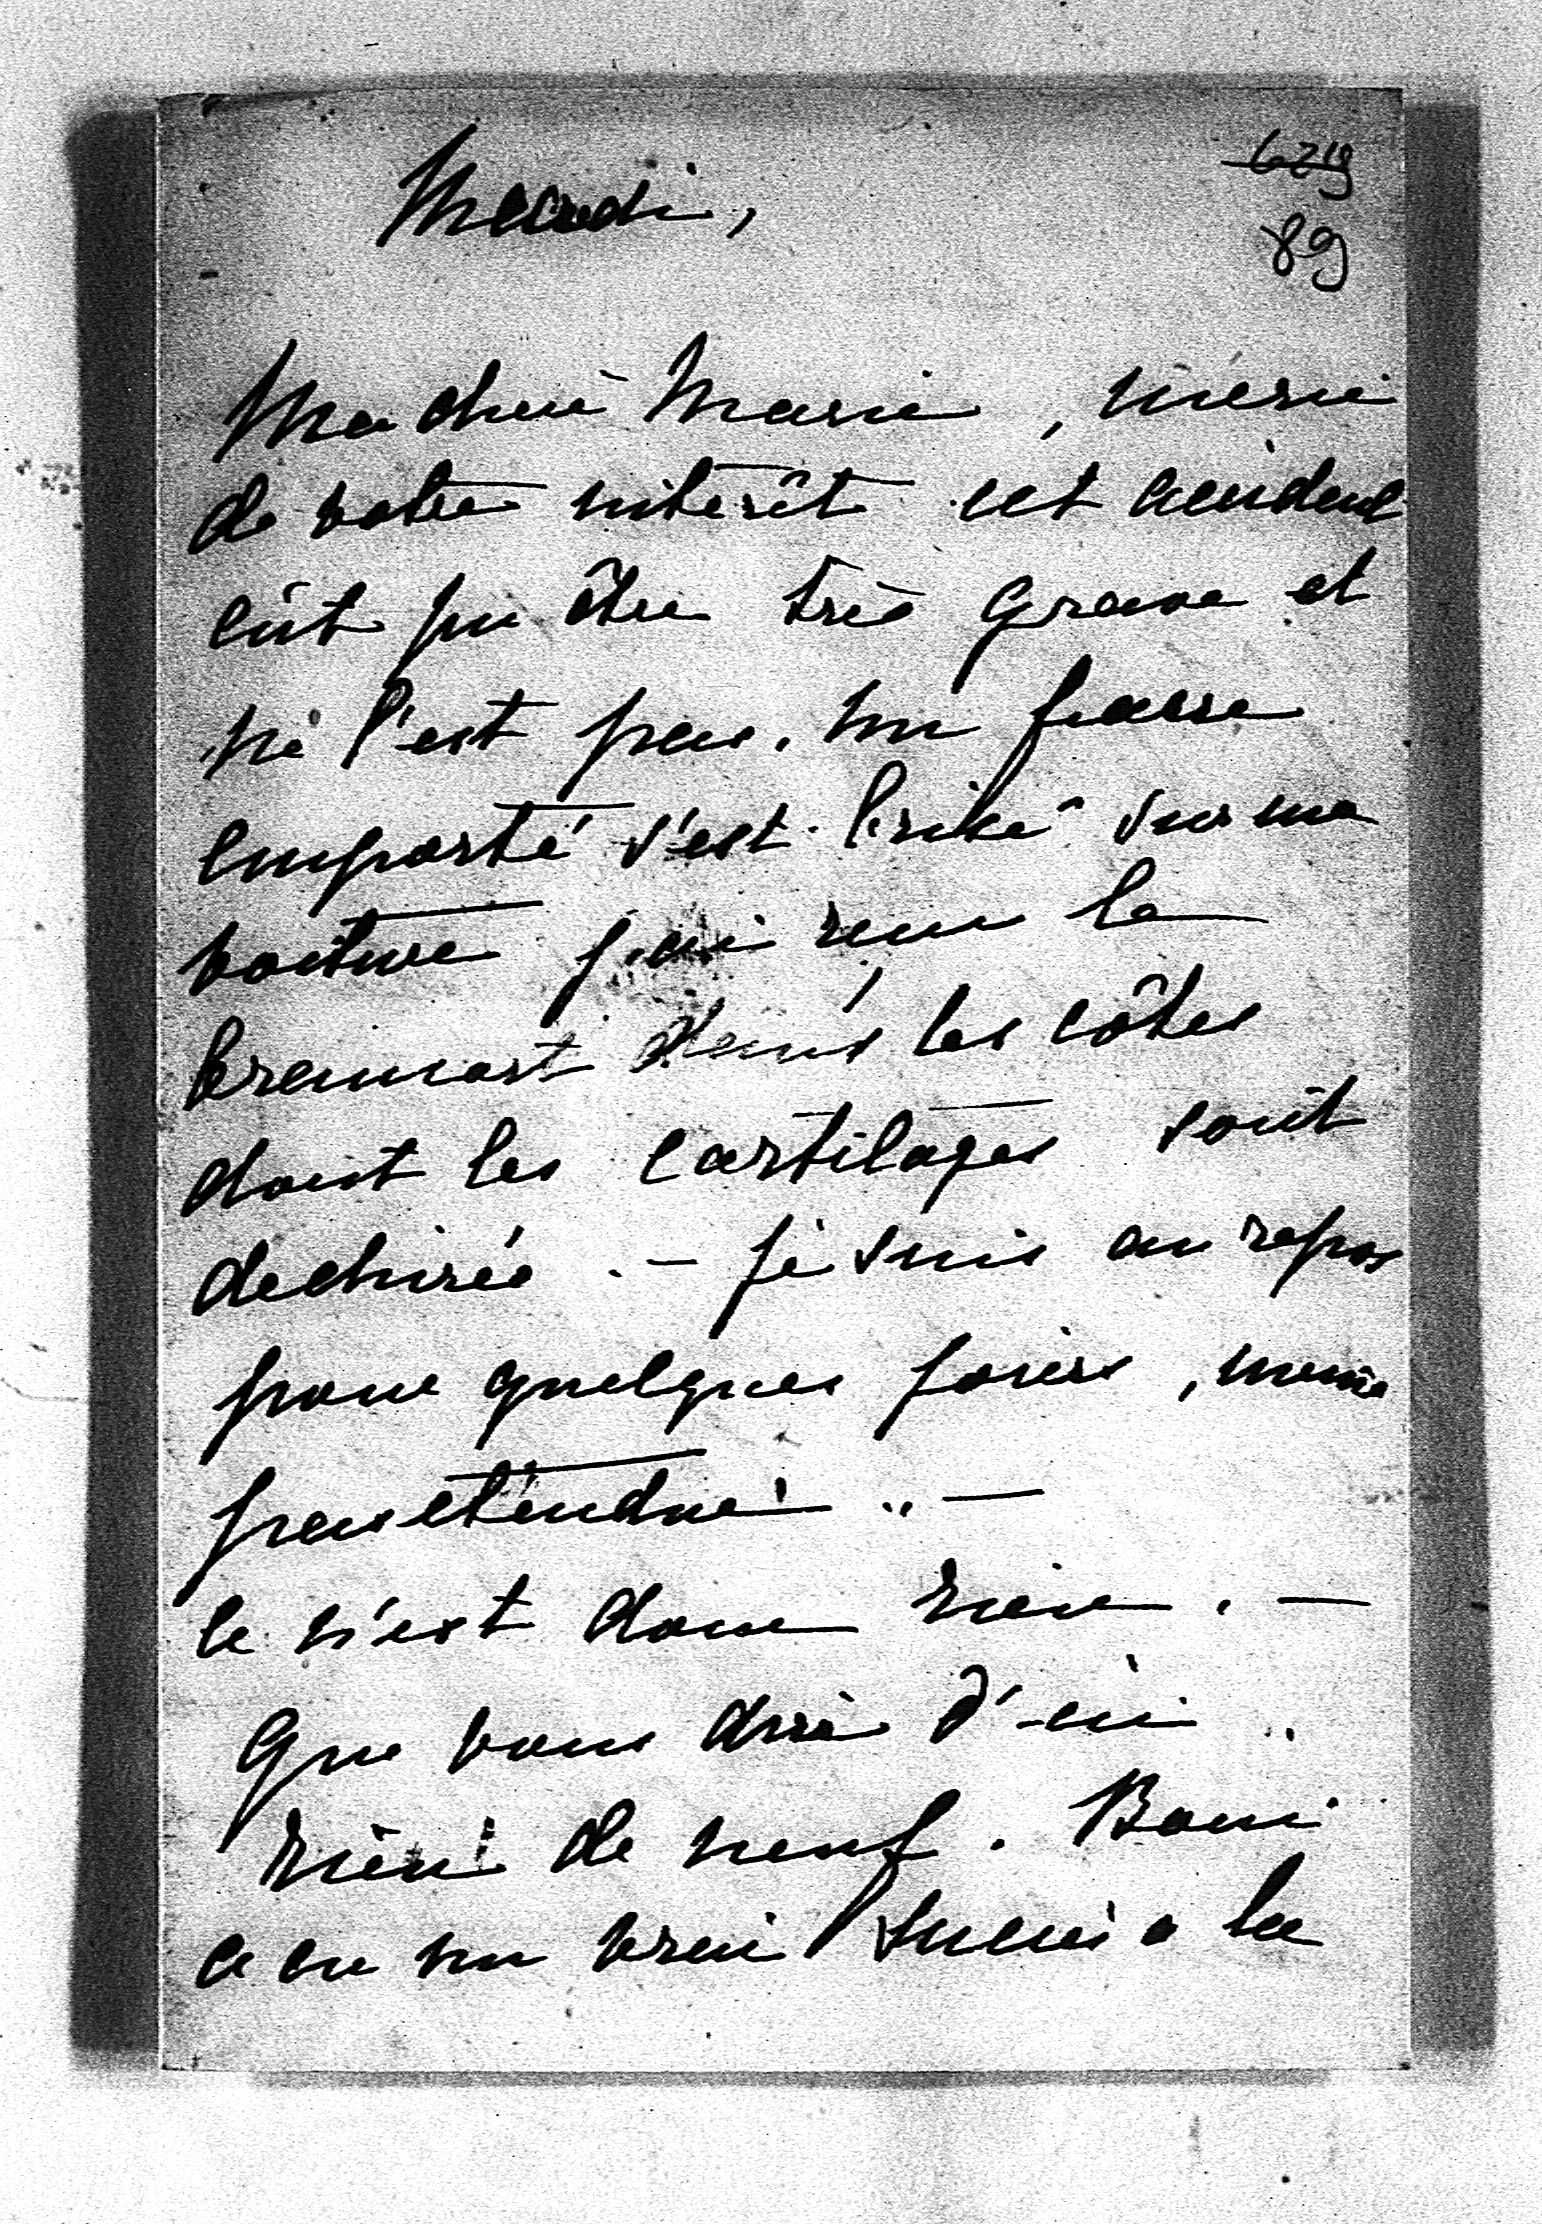 6219
89
Ma chère Marie, merci
de votre intérêt cet accident
eût pu être très grave et
ne l'est pas. un fiacre
emporté s'est brisé sur ma
voiture j'ai reçu le
brancart dans les côtes
dont les cartilages sont
dechirés. — je suis au repos
pour quelques jours, même
pas étendue.. —
ce n'est donc rien. —
Que vous dire d'ici..
rien de neuf. Boni
a eu un vrai succès a la